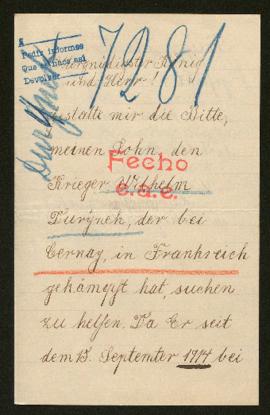 7281
Pedir informes
Devolver
und Herr!
gestatte mir die Bitte,
meinen Sohn, den
Fecho
Krieger Wilhelm
e.a.e.
Duryneh, der bei
Cernay, in Frankreich
gekämpft hat, suchen
zu helfen. Da Er seit
dem 13. September 1914 bei